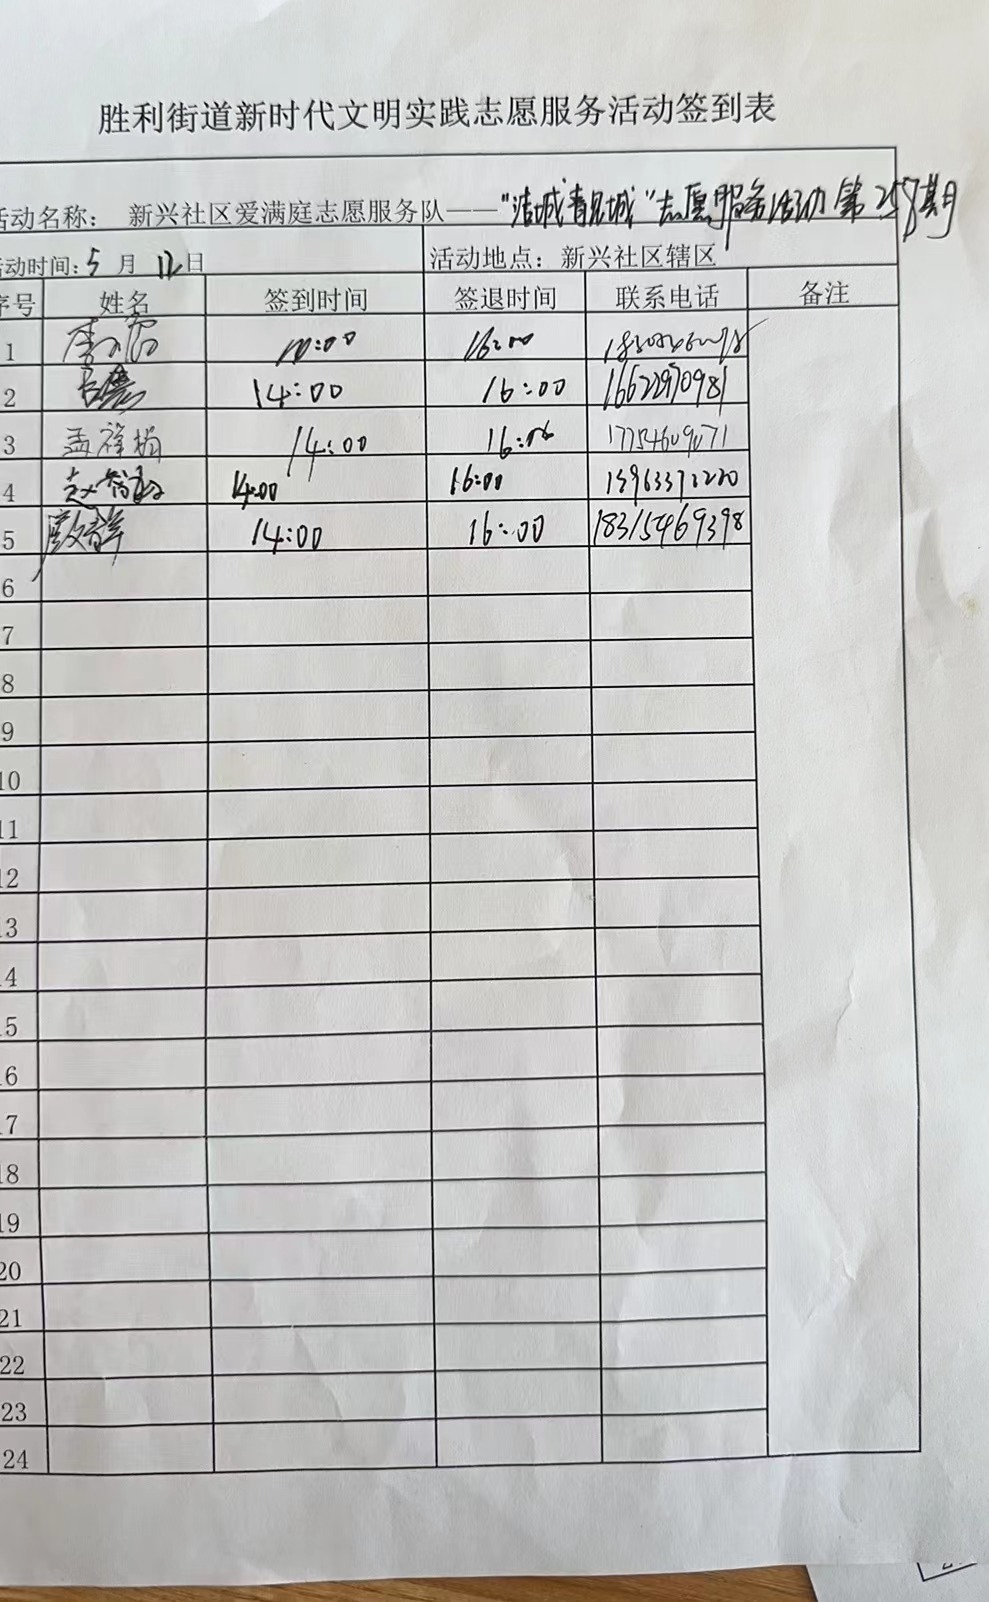 胜利街道新时代文明实践志愿服务活动签到表
活动名称： 新兴社区爱满庭志愿服务队——"洁城青见城"志愿服务活动 第258期
活动时间：5 月 12 日 活动地点：新兴社区辖区
序号 姓名 签到时间 签退时间 联系电话 备注
1 16:00
2 14:00 16:00 16622970981
3 孟祥梅 14:00 16:00
4 赵智敏 14:00 16:00 15963372220
5 14:00 16:00 18315469398
6
7
8
9
10
11
12
13
14
15
16
17
18
19
20
21
22
23
24